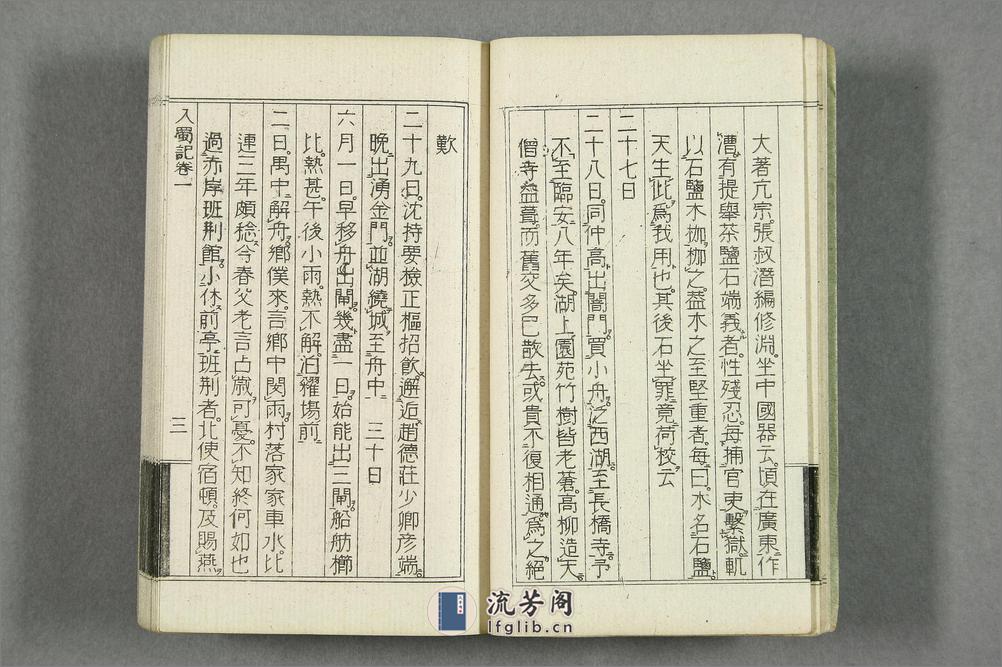 大著亢宗張叔潛編修淵坐中國器云頃在廣東作
漕有提舉茶鹽石端義者性殘忍每捕官吏繫獄輒
以石鹽木枷枷之葢木之至堅重者每曰木名石鹽
天生此爲我用也其後石坐罪竟荷校云
二十七日
二十八日同仲高出闇門買小舟泛西湖至長橋寺予
不至臨安八年矣湖上園苑竹樹皆老蒼高柳造天
僧寺益葺而舊交多已散去或貴不復相通爲之絕
歎
二十九日沈持要檢正樞招飲邂近趙德莊少卿彦端
晚出湧金門並湖繞城至舟中 三十日
六月一日早移舟出閘幾盡一日始能出三閘船舫櫛
比熱甚午後小雨熱不解泊糴塲前
二日禺中解舟鄉僕來言鄉中閔雨村落家家車水比
連三年頗稔今春父老言占歲可憂不知終何如也
過赤岸班荆館小休前亭班荆者北使宿頓及賜燕
入蜀記卷一
三
流芳阁
lfglib.cn